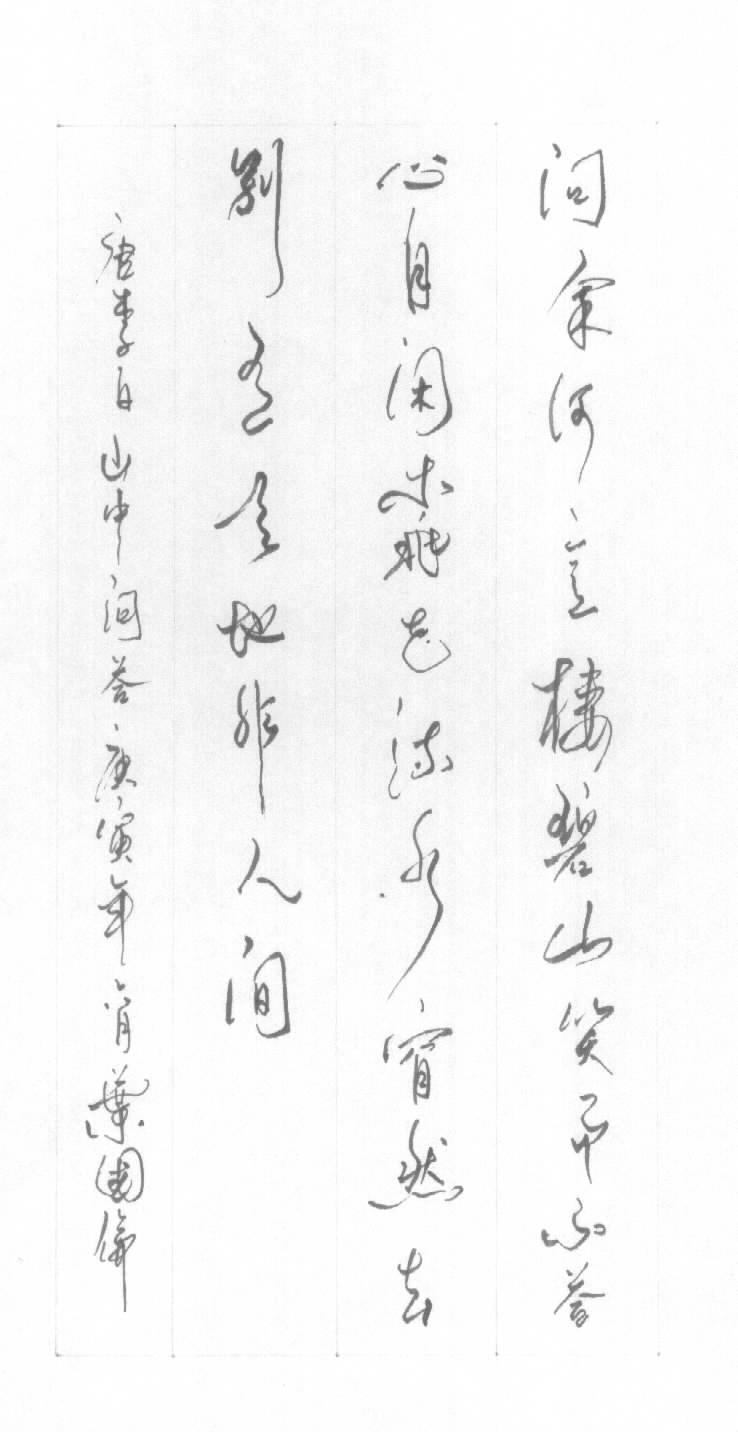 问余何意棲碧山笑而不答
心自闲桃花流水窅然去
别有天地非人间
唐李白山中问答庚寅年六月葉國偉